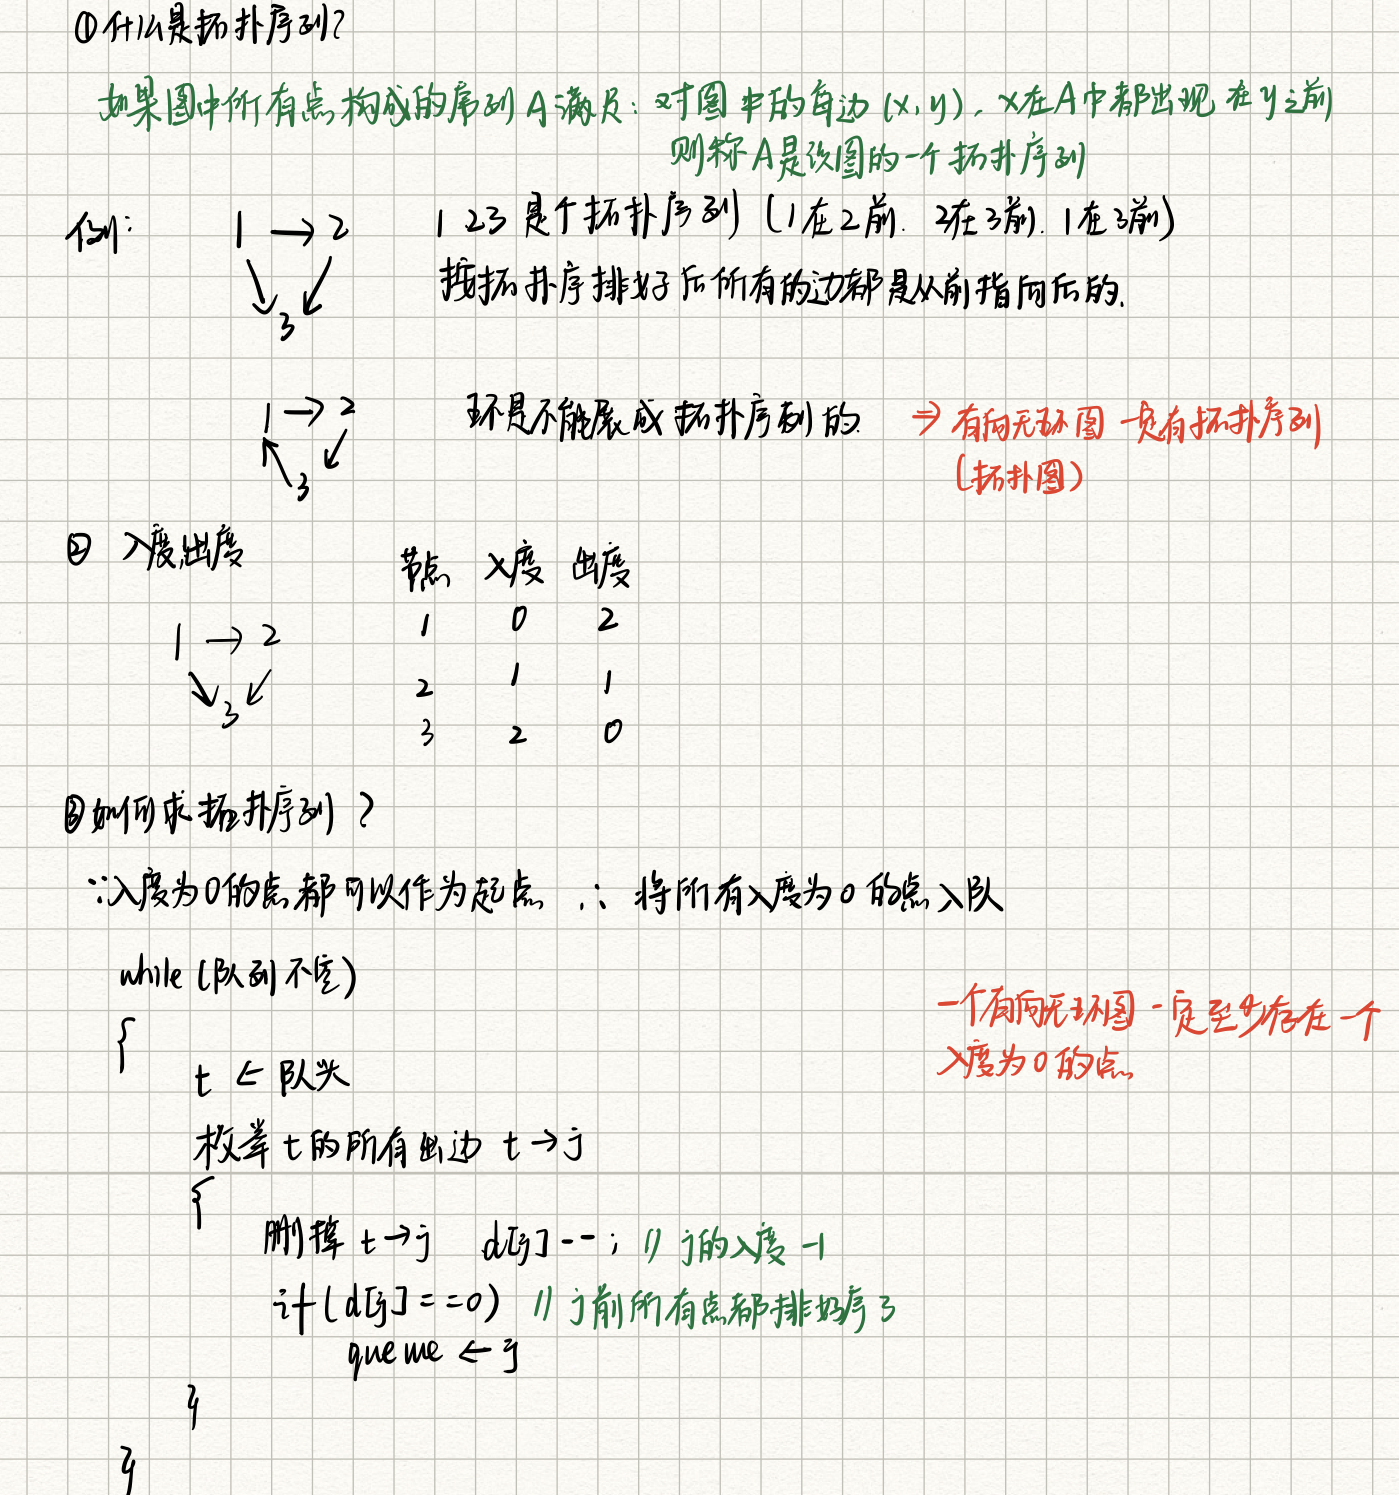 ①什么是拓扑序列?
如果图中所有点构成的序列A满足:对图中的每边(x,y),x在A中都出现在y之前
则称A是该图的一个拓扑序列
例:
1 → 2
3
1 2 3 是个拓扑序列 (1在2前. 2在3前. 1在3前)
按拓扑序排好后所有的边都是从前指向后的.
1 → 2
3
环是不能展成拓扑序列的.
⇒ 有向无环图一定有拓扑序列
(拓扑图)
② 入度,出度
1 → 2
3
节点 入度 出度
1 0 2
2 1 1
3 2 0
③如何求拓扑序列?
∵入度为0的点都可以作为起点 ∴ 将所有入度为0的点入队
while (队列不空)
{
t ← 队头
枚举t的所有出边 t→j
{
删掉 t→j d[j]--; // j的入度-1
if(d[j]==0) // j前所有点都排好序了
queue ← j
}
}
一个有向无环图一定至少存在一个
入度为0的点